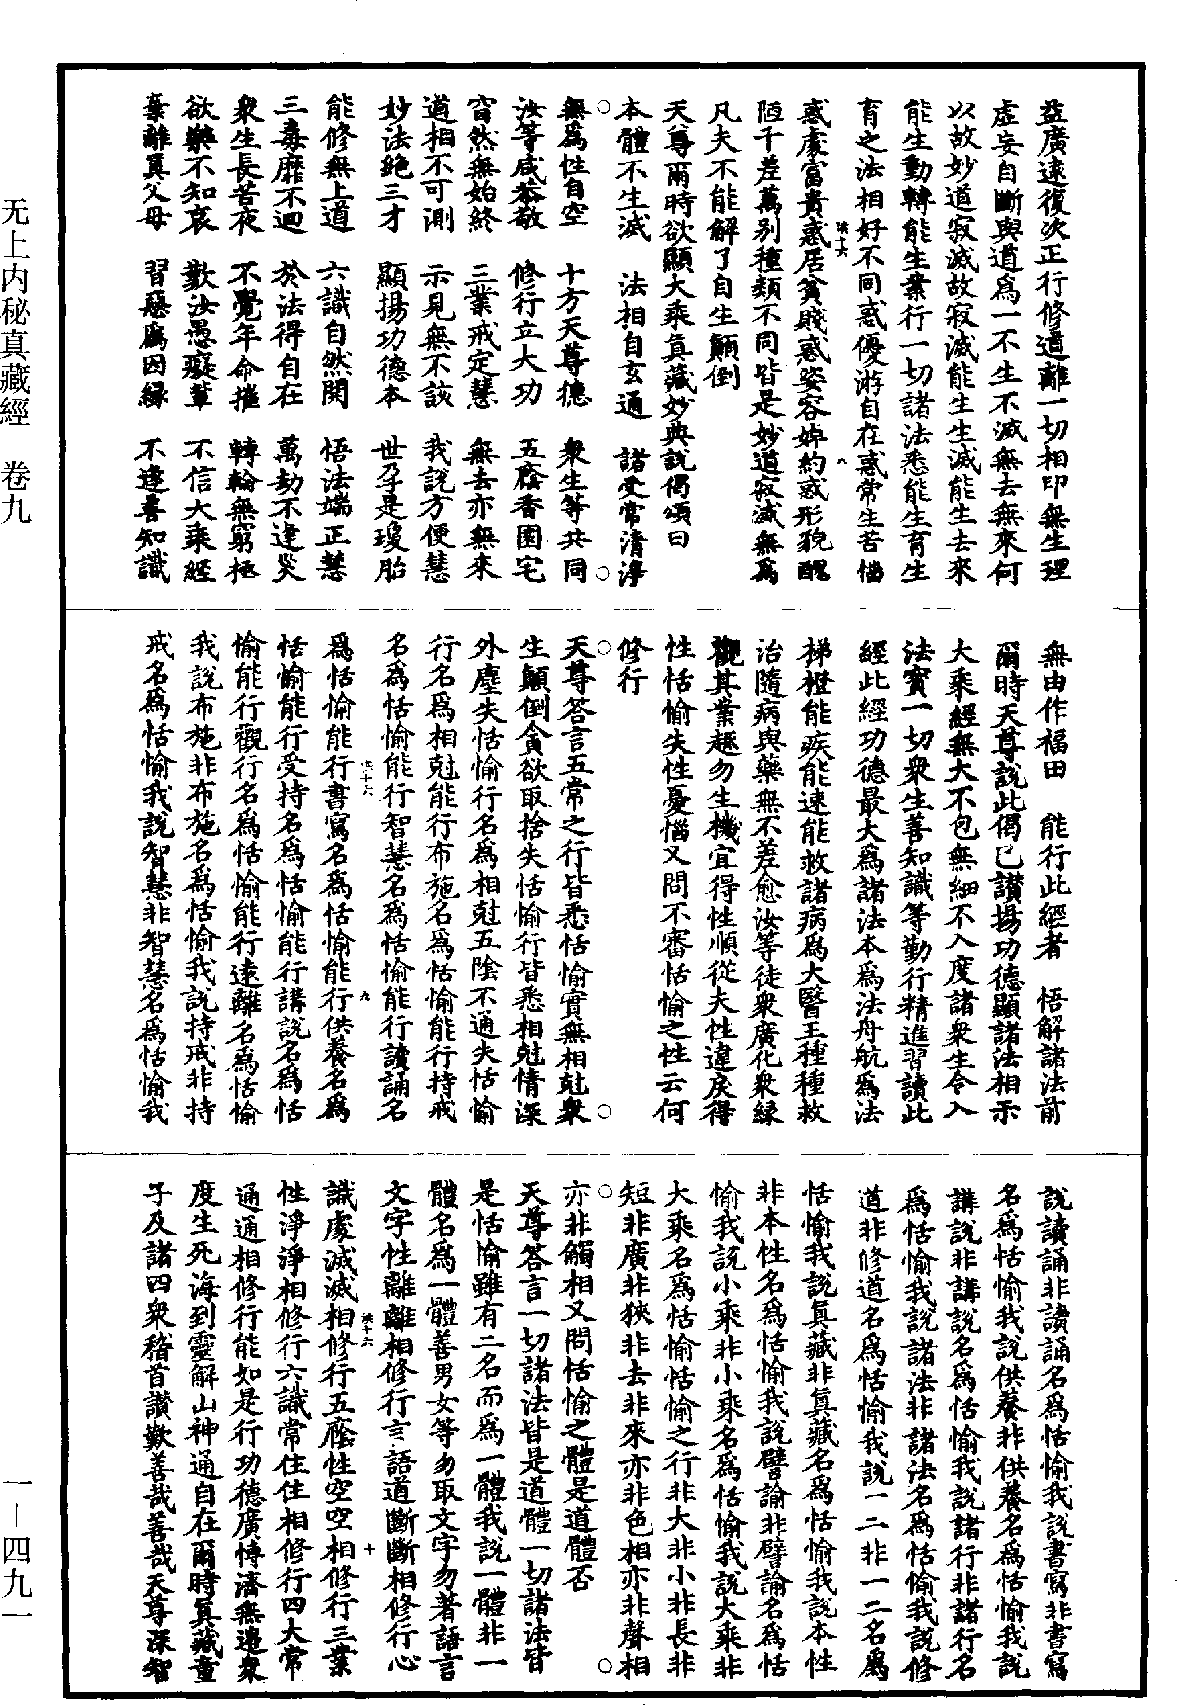 益廣遠復次正行修道離一切相印無生理
虛妄自斷與道爲一不生不滅無去無來何
以故妙道寂滅故寂滅能生生滅能生去來
能生動轉能生業行一切諸法悉能生育生
育之法相好不同惑優游自在惑常生苦惱
惑處富貴惑居貧賤惑姿容婥約惑形貌醜
洪十六
八
陋千差萬别種類不同皆是妙道寂滅無爲
凡夫不能解了自生顛倒
天尊爾時欲顯大乘真藏妙典說偈頌曰
本體不生滅　法相自玄通　諸受常清淨
無爲性自空　十方天尊德　衆生等共同
汝等咸恭敬　修行立大功　五廕香園宅
窅然無始終　三業戒定慧　無去亦無來
道相不可測　示見無不該　我說方便慧
妙法絶三才　顯揚功德本　世孕是瓊胎
能修無上道　六識自然開　悟法端正慧
三毒靡不迴　於法得自在　萬劫不逢災
衆生長苦夜　不覺年命摧　轉輪無窮極
欲樂不知哀　歎汝愚癡輩　不信大乘經
棄離真父母　習惡爲因緣　不逢善知識
無由作福田　能行此經者　悟解諸法前
爾時天尊說此偈已讚揚功德顯諸法相示
大乘經無大不包無細不入度諸衆生令入
法寶一切衆生善知識等勤行精進習讀此
經此經功德最大爲諸法本爲法舟航爲法
梯橙能疾能速能救諸病爲大醫王種種救
治隨病與藥無不差愈汝等徒衆廣化衆緣
觀其業趣勿生機宜得性順從夫性違戾得
性恬愉失性憂惱又問不審恬愉之性云何
修行
天尊答言五常之行皆悉恬愉實無相尅衆
生顛倒貪欲取捨失恬愉行皆悉相尅情深
外塵失恬愉行名爲相尅五陰不通失恬愉
行名爲相尅能行布施名爲恬愉能行持戒
名爲恬愉能行智慧名爲恬愉能行讀誦名
洪十六
九
爲恬愉能行書寫名爲恬愉能行供養名爲
恬愉能行受持名爲恬愉能行講說名爲恬
愉能行觀行名爲恬愉能行遠離名爲恬愉
我說布施非布施名爲恬愉我說持戒非持
戒名爲恬愉我說智慧非智慧名爲恬愉我
說讀誦非讀誦名爲恬愉我說書寫非書寫
名爲恬愉我說供養非供養名爲恬愉我說
講說非講說名爲恬愉我說諸行非諸行名
爲恬愉我說諸法非諸法名爲恬愉我說修
道非修道名爲恬愉我說一二非一二名爲
恬愉我說真藏非真藏名爲恬愉我說本性
非本性名爲恬愉我說譬諭非譬諭名爲恬
愉我說小乘非小乘名爲恬愉我說大乘非
大乘名爲恬愉恬愉之行非大非小非長非
短非廣非狹非去非來亦非色相亦非聲相
亦非觸相又問恬愉之體是道體否
天尊答言一切諸法皆是道體一切諸法皆
是恬愉雖有二名而爲一體我說一體非一
體名爲一體善男女等勿取文字勿著語言
文字性離離相修行言語道斷斷相修行心
洪十六
十
識處滅滅相修行五廕性空空相修行三業
性淨淨相修行六識常住住相修行四大常
通通相修行能如是行功德廣博濟無邊衆
度生死海到靈解山神通自在爾時真藏童
子及諸四衆稽首讚歎善哉善哉天尊深智
无上内秘真藏經　卷九
一—四九一